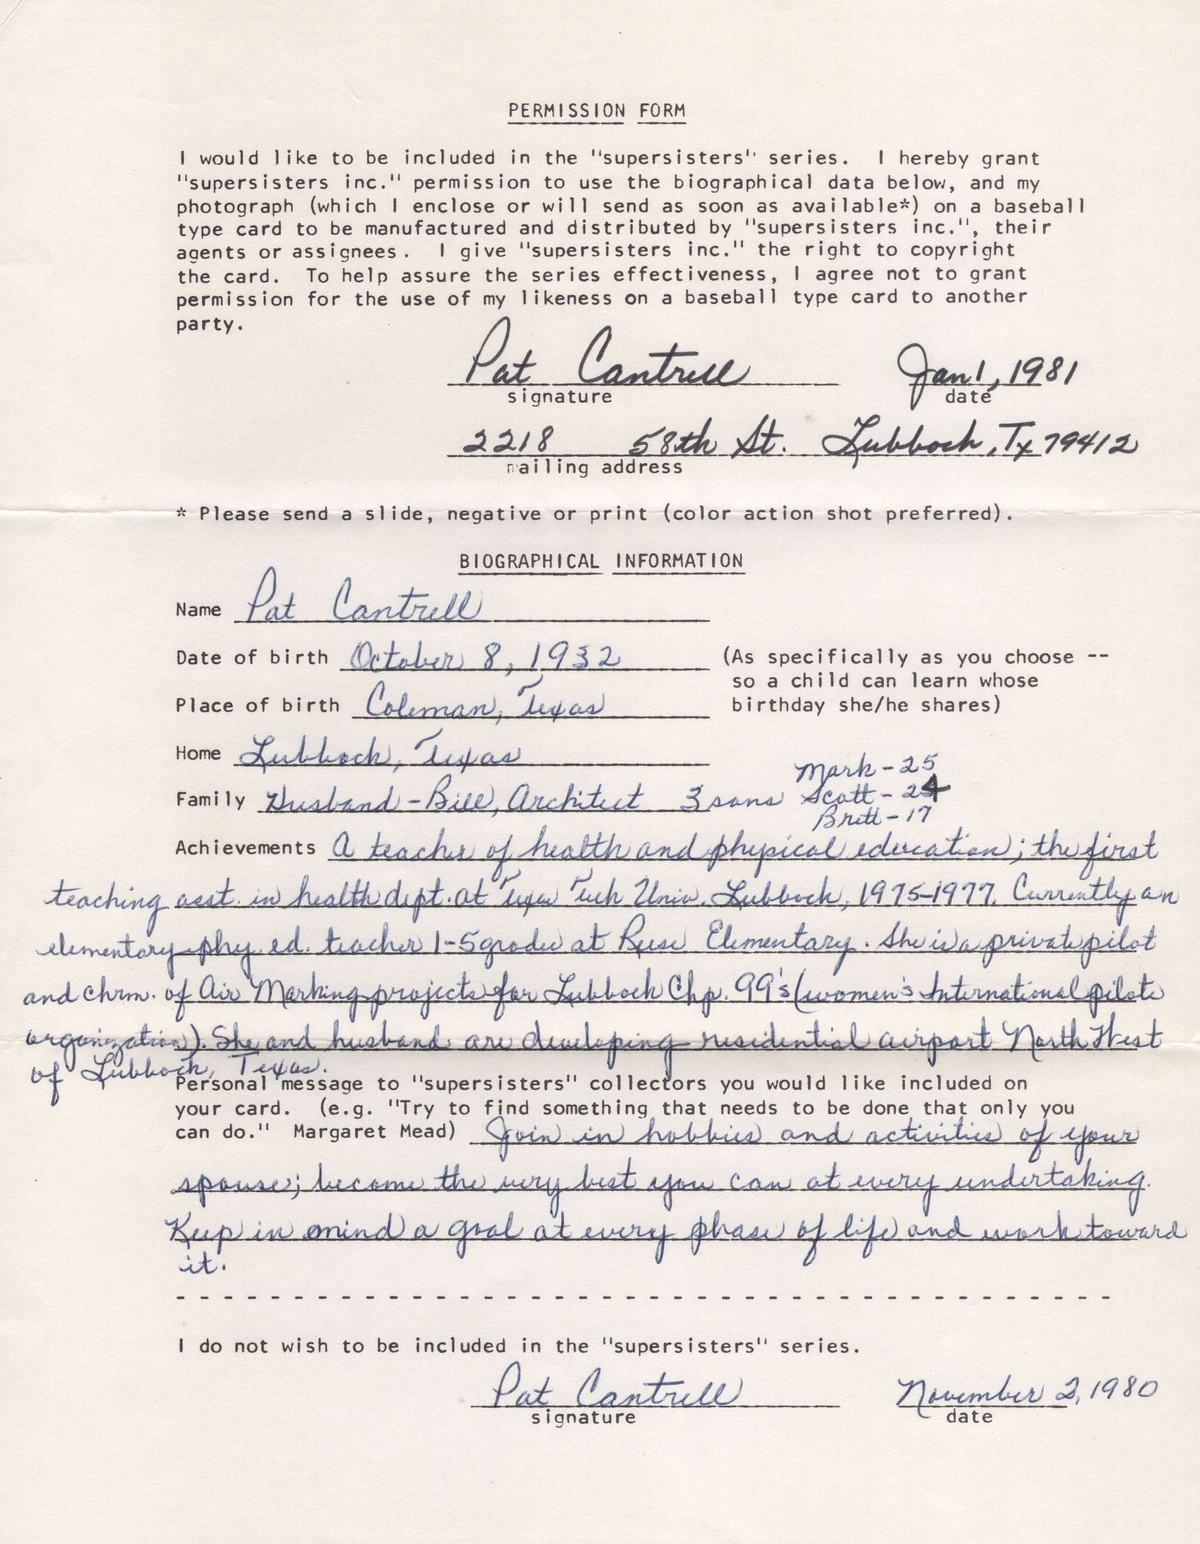 PERMISSION FORM
I would like to be included in the "supersisters" series. I hereby grant
"supersisters inc." permission to use the biographical data below, and my
photograph (which I enclose or will send as soon as available*) on a baseball
type card to be manufactured and distributed by "supersisters inc.", their
agents or assignees. I give "supersisters inc." the right to copyright
the card. To help assure the series effectiveness, I agree not to grant
permission for the use of my likeness on a baseball type card to another
party.
Pat Cantrell Jan 1, 1981
signature date
2218 58th St. Lubbock, Tx 79412
mailing address
* Please send a slide, negative or print (color action shot preferred).
BIOGRAPHICAL INFORMATION
Name Pat Cantrell
Date of birth October 8, 1932 (As specifically as you choose --
so a child can learn whose
Place of birth Coleman, Texas birthday she/he shares)
Home Lubbock, Texas
Mark - 25
Family Husband - Bill, Architect 3 sons Scott - 24
Britt - 17
Achievements A teacher of health and physical education; the first
teaching asst. in health dept. at Texas Tech Univ. Lubbock, 1975-1977. Currently an
elementary phy. ed. teacher 1-5 grades at Elementary. She is a private pilot
and chrm. of Air Marking projects for Lubbock Chp. 99's (women's International pilots
organization). She and husband are developing residential airport North West
of Lubbock, Texas.
Personal message to "supersisters" collectors you would like included on
your card. (e.g. "Try to find something that needs to be done that only you
can do." Margaret Mead) Join in hobbies and activities of your
spouse; become the very best you can at every undertaking.
Keep in mind a goal at every phase of life and work toward
it.
I do not wish to be included in the "supersisters" series.
Pat Cantrell November 2, 1980
signature date